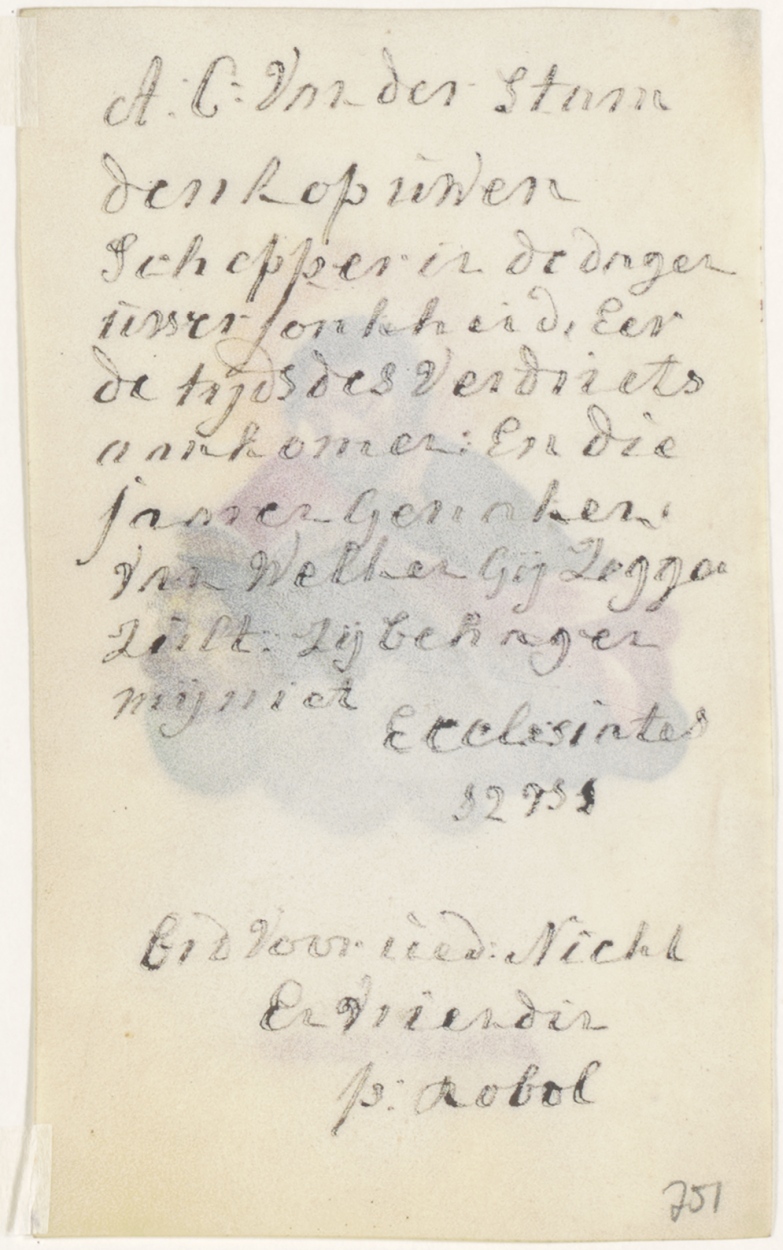 A: C: Van der Stam
denk op uwen
Schepper in de dagen
uwer Jonkheid, Eer
de tijds des Verdriets
aankomen: En die
jaaren Genaken,
Van Welken Gij Zeggen
Zult: Zij behagen
mij niet
Ecclesiates
12 vs 1
bid voor ued: Nicht
En Vriendin
p: Robol
751